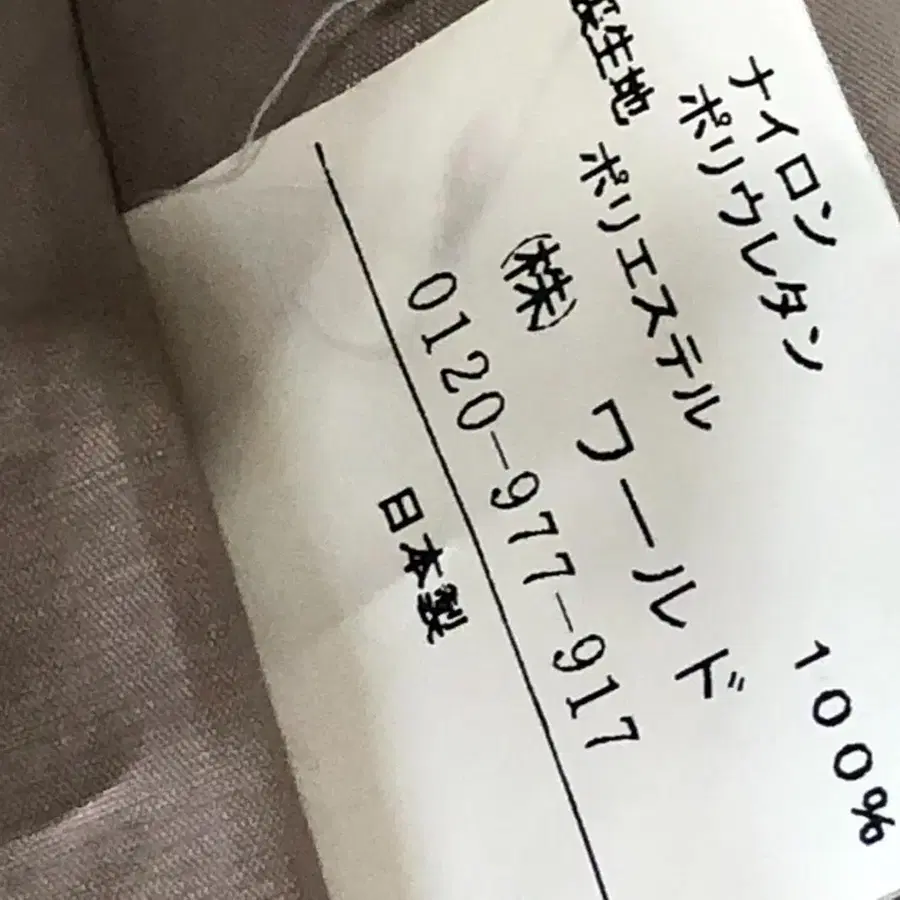 ナイロン
ポリウレタン
生地 ポリエステル 100%
(株) ワールド
0120-977-917
日本製